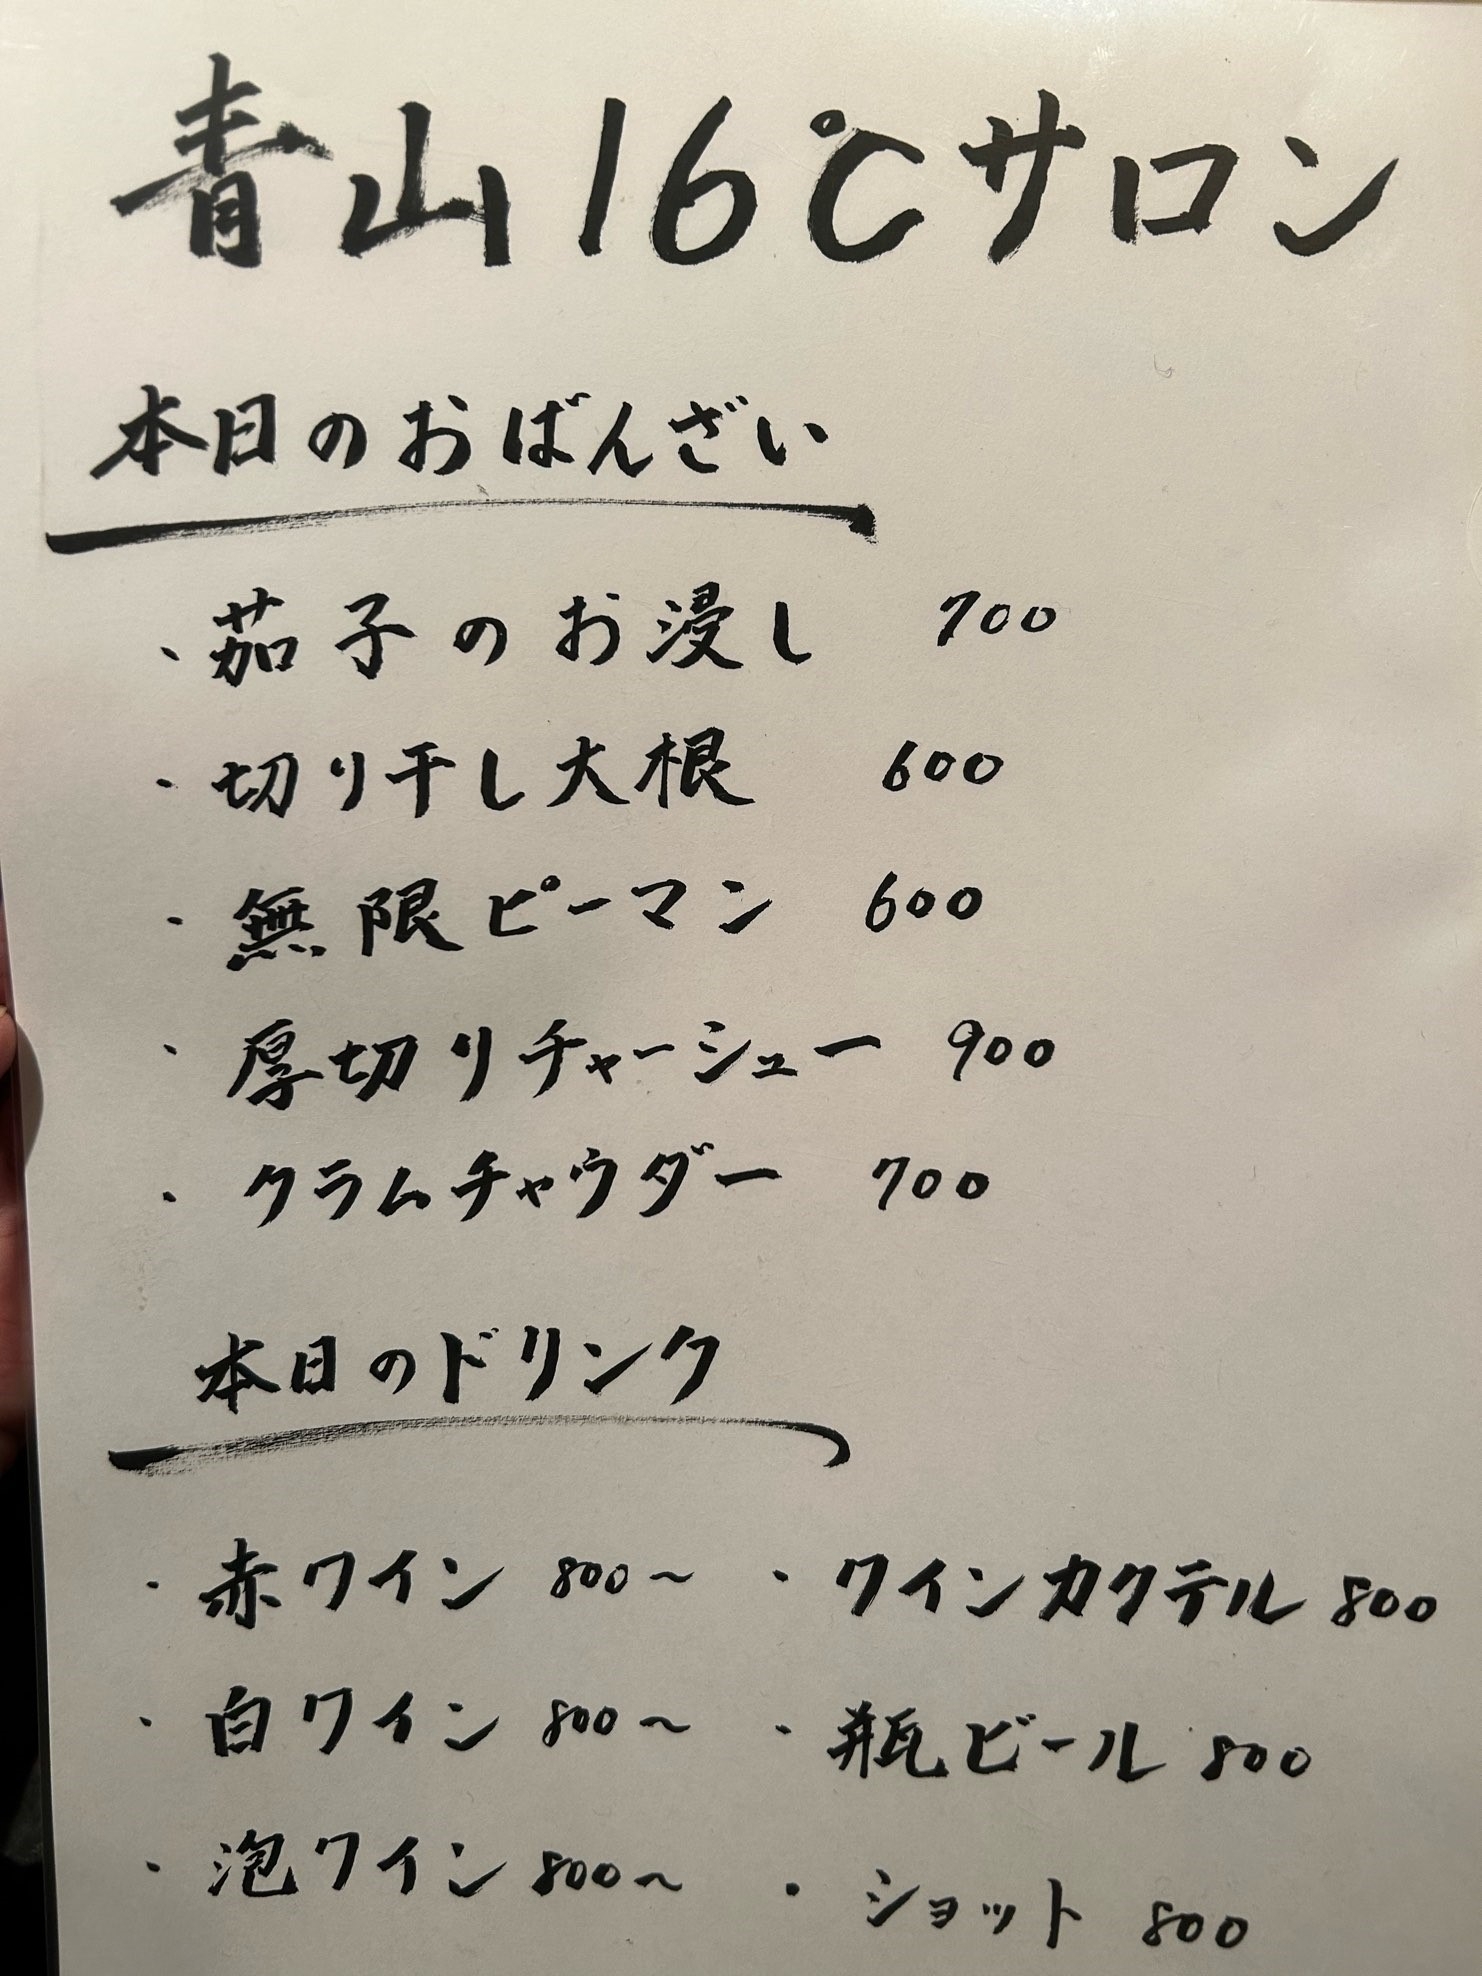 青山16℃サロン
本日のおばんざい
・茄子のお浸し 700
・切り干し大根 600
・無限ピーマン 600
・厚切りチャーシュー 900
・クラムチャウダー 700
本日のドリンク
・赤ワイン 800～ ・ワインカクテル 800
・白ワイン 800～ ・瓶ビール 800
・泡ワイン 800～ ・ショット 800